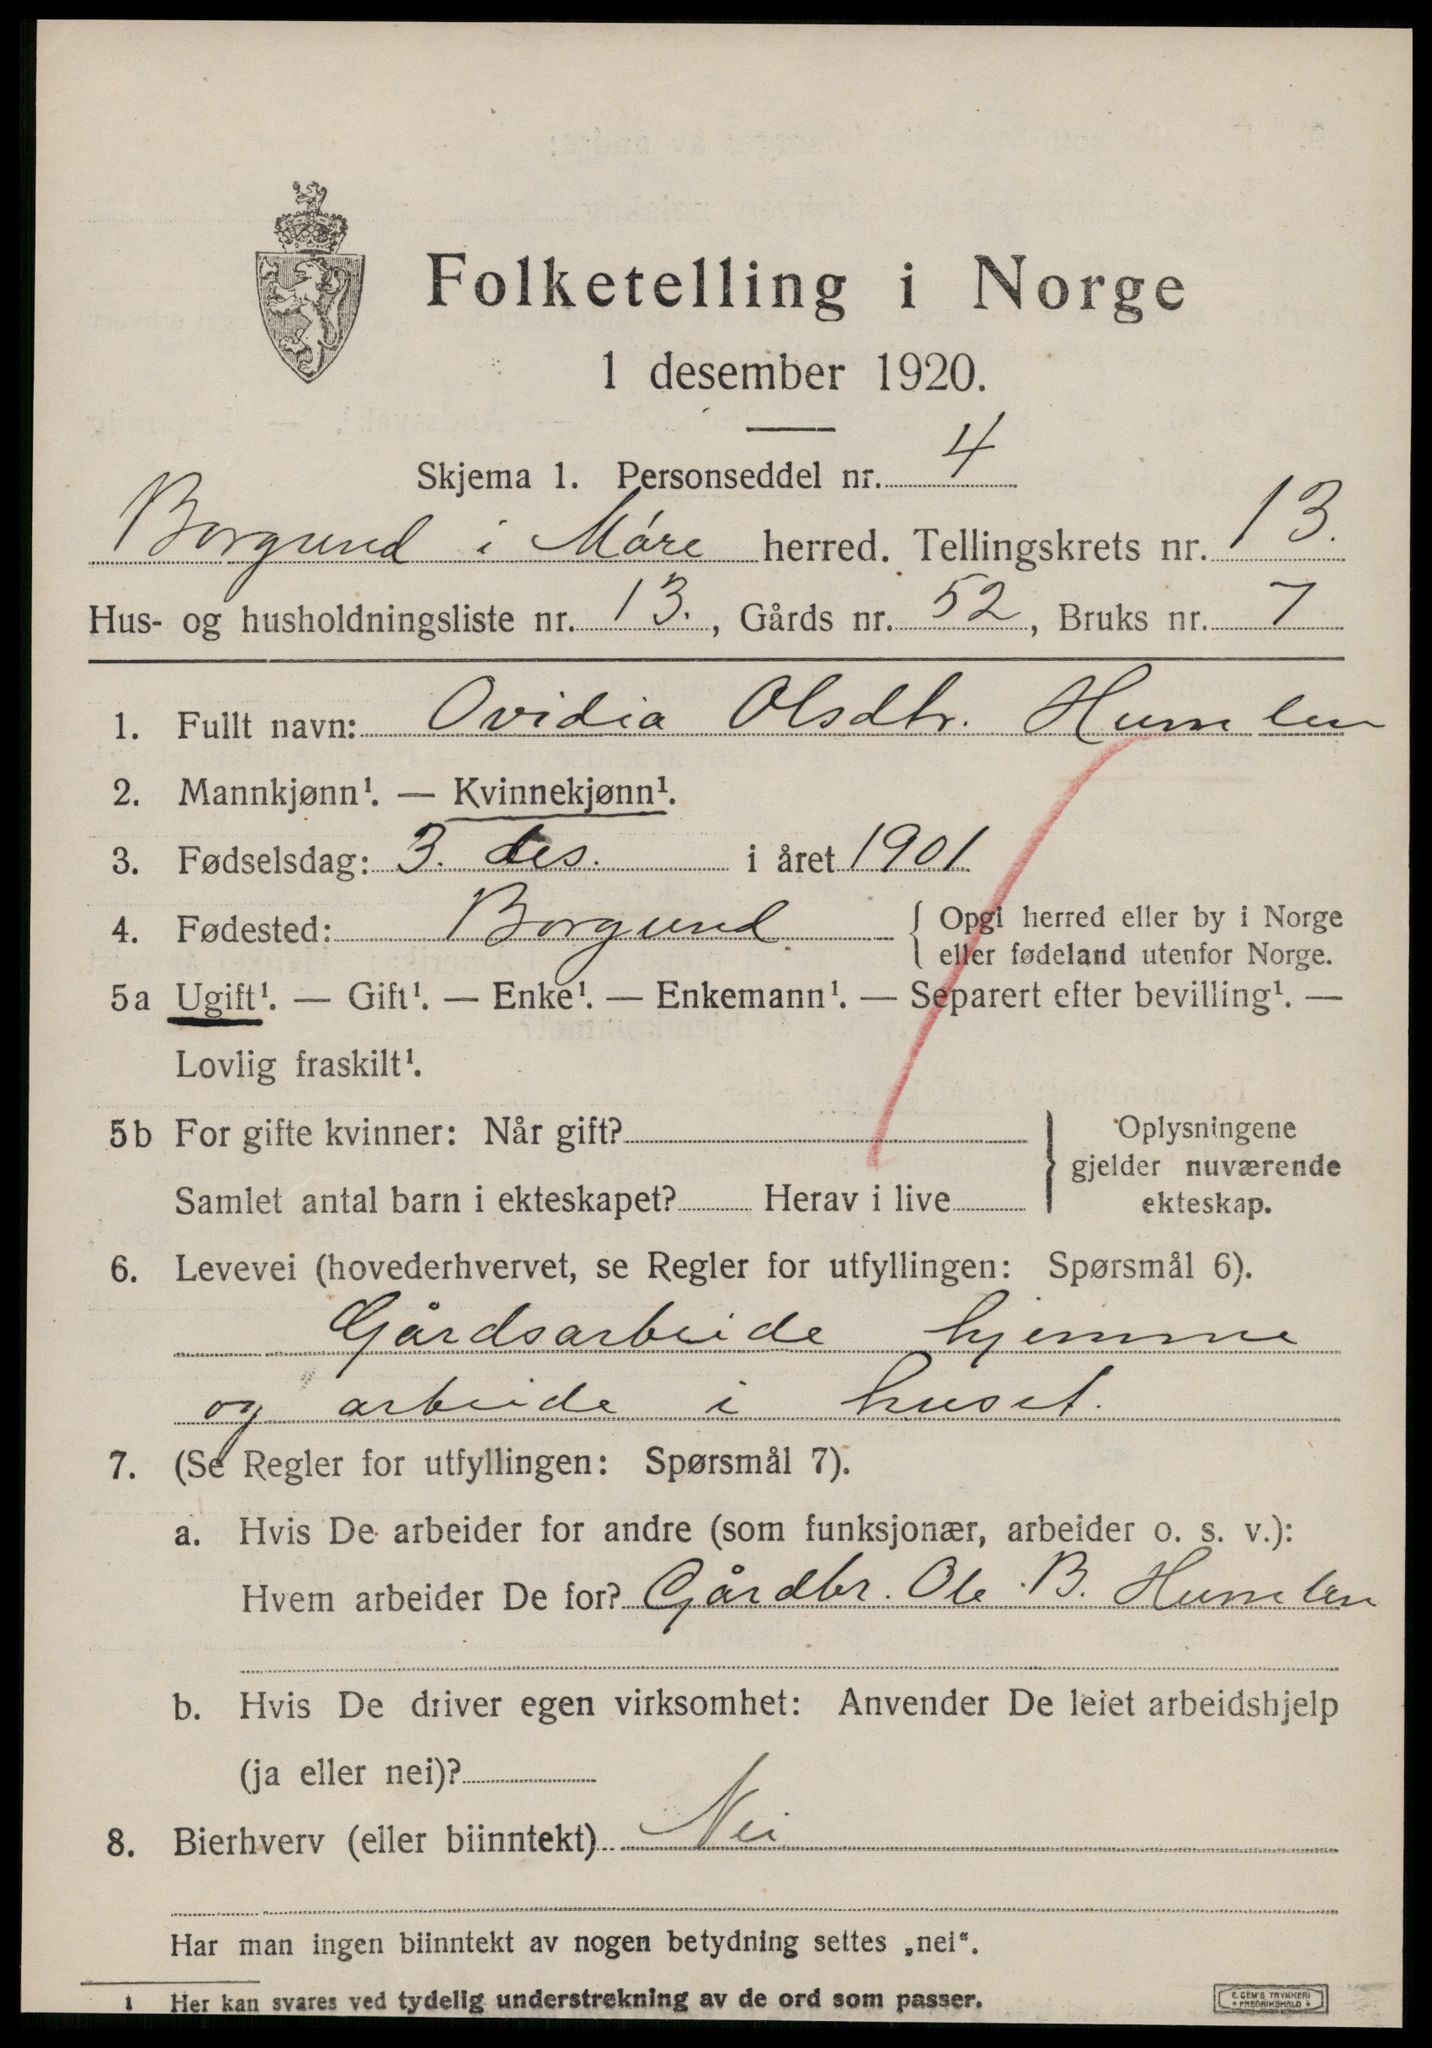 Folketelling i Norge
1 desember 1920.
Skjema 1. Personseddel nr. 4
Borgund i Møre herred. Tellingskrets nr. 13.
Hus- og husholdningsliste nr. 13., Gårds nr. 52, Bruks nr. 7
1. Fullt navn: Ovidia Olsdtr. Humlen
2. Mannkjønn¹. — Kvinnekjønn¹.
3. Fødselsdag: 3. des. i året 1901
4. Fødested: Borgund. { Opgi herred eller by i Norge
eller fødeland utenfor Norge.
5a Ugift¹. — Gift¹. — Enke¹. — Enkemann¹. — Separert efter bevilling¹. —
Lovlig fraskilt¹.
5b For gifte kvinner: Når gift?
Samlet antal barn i ekteskapet? Herav i live
} Oplysningene
gjelder nuværende
ekteskap.
6. Levevei (hovederhvervet, se Regler for utfyllingen: Spørsmål 6).
Gårdsarbeide hjemme
og arbeide i huset.
7. (Se Regler for utfyllingen: Spørsmål 7).
a. Hvis De arbeider for andre (som funksjonær, arbeider o. s. v.):
Hvem arbeider De for? Gårdbr. Ole B. Humlen
b. Hvis De driver egen virksomhet: Anvender De leiet arbeidshjelp
(ja eller nei)?
8. Bierhverv (eller biinntekt) Nei
Har man ingen biinntekt av nogen betydning settes „nei".
1 Her kan svares ved tydelig understrekning av de ord som passer.
E. SEM'S TRYKKERI
FREDRIKSHALD